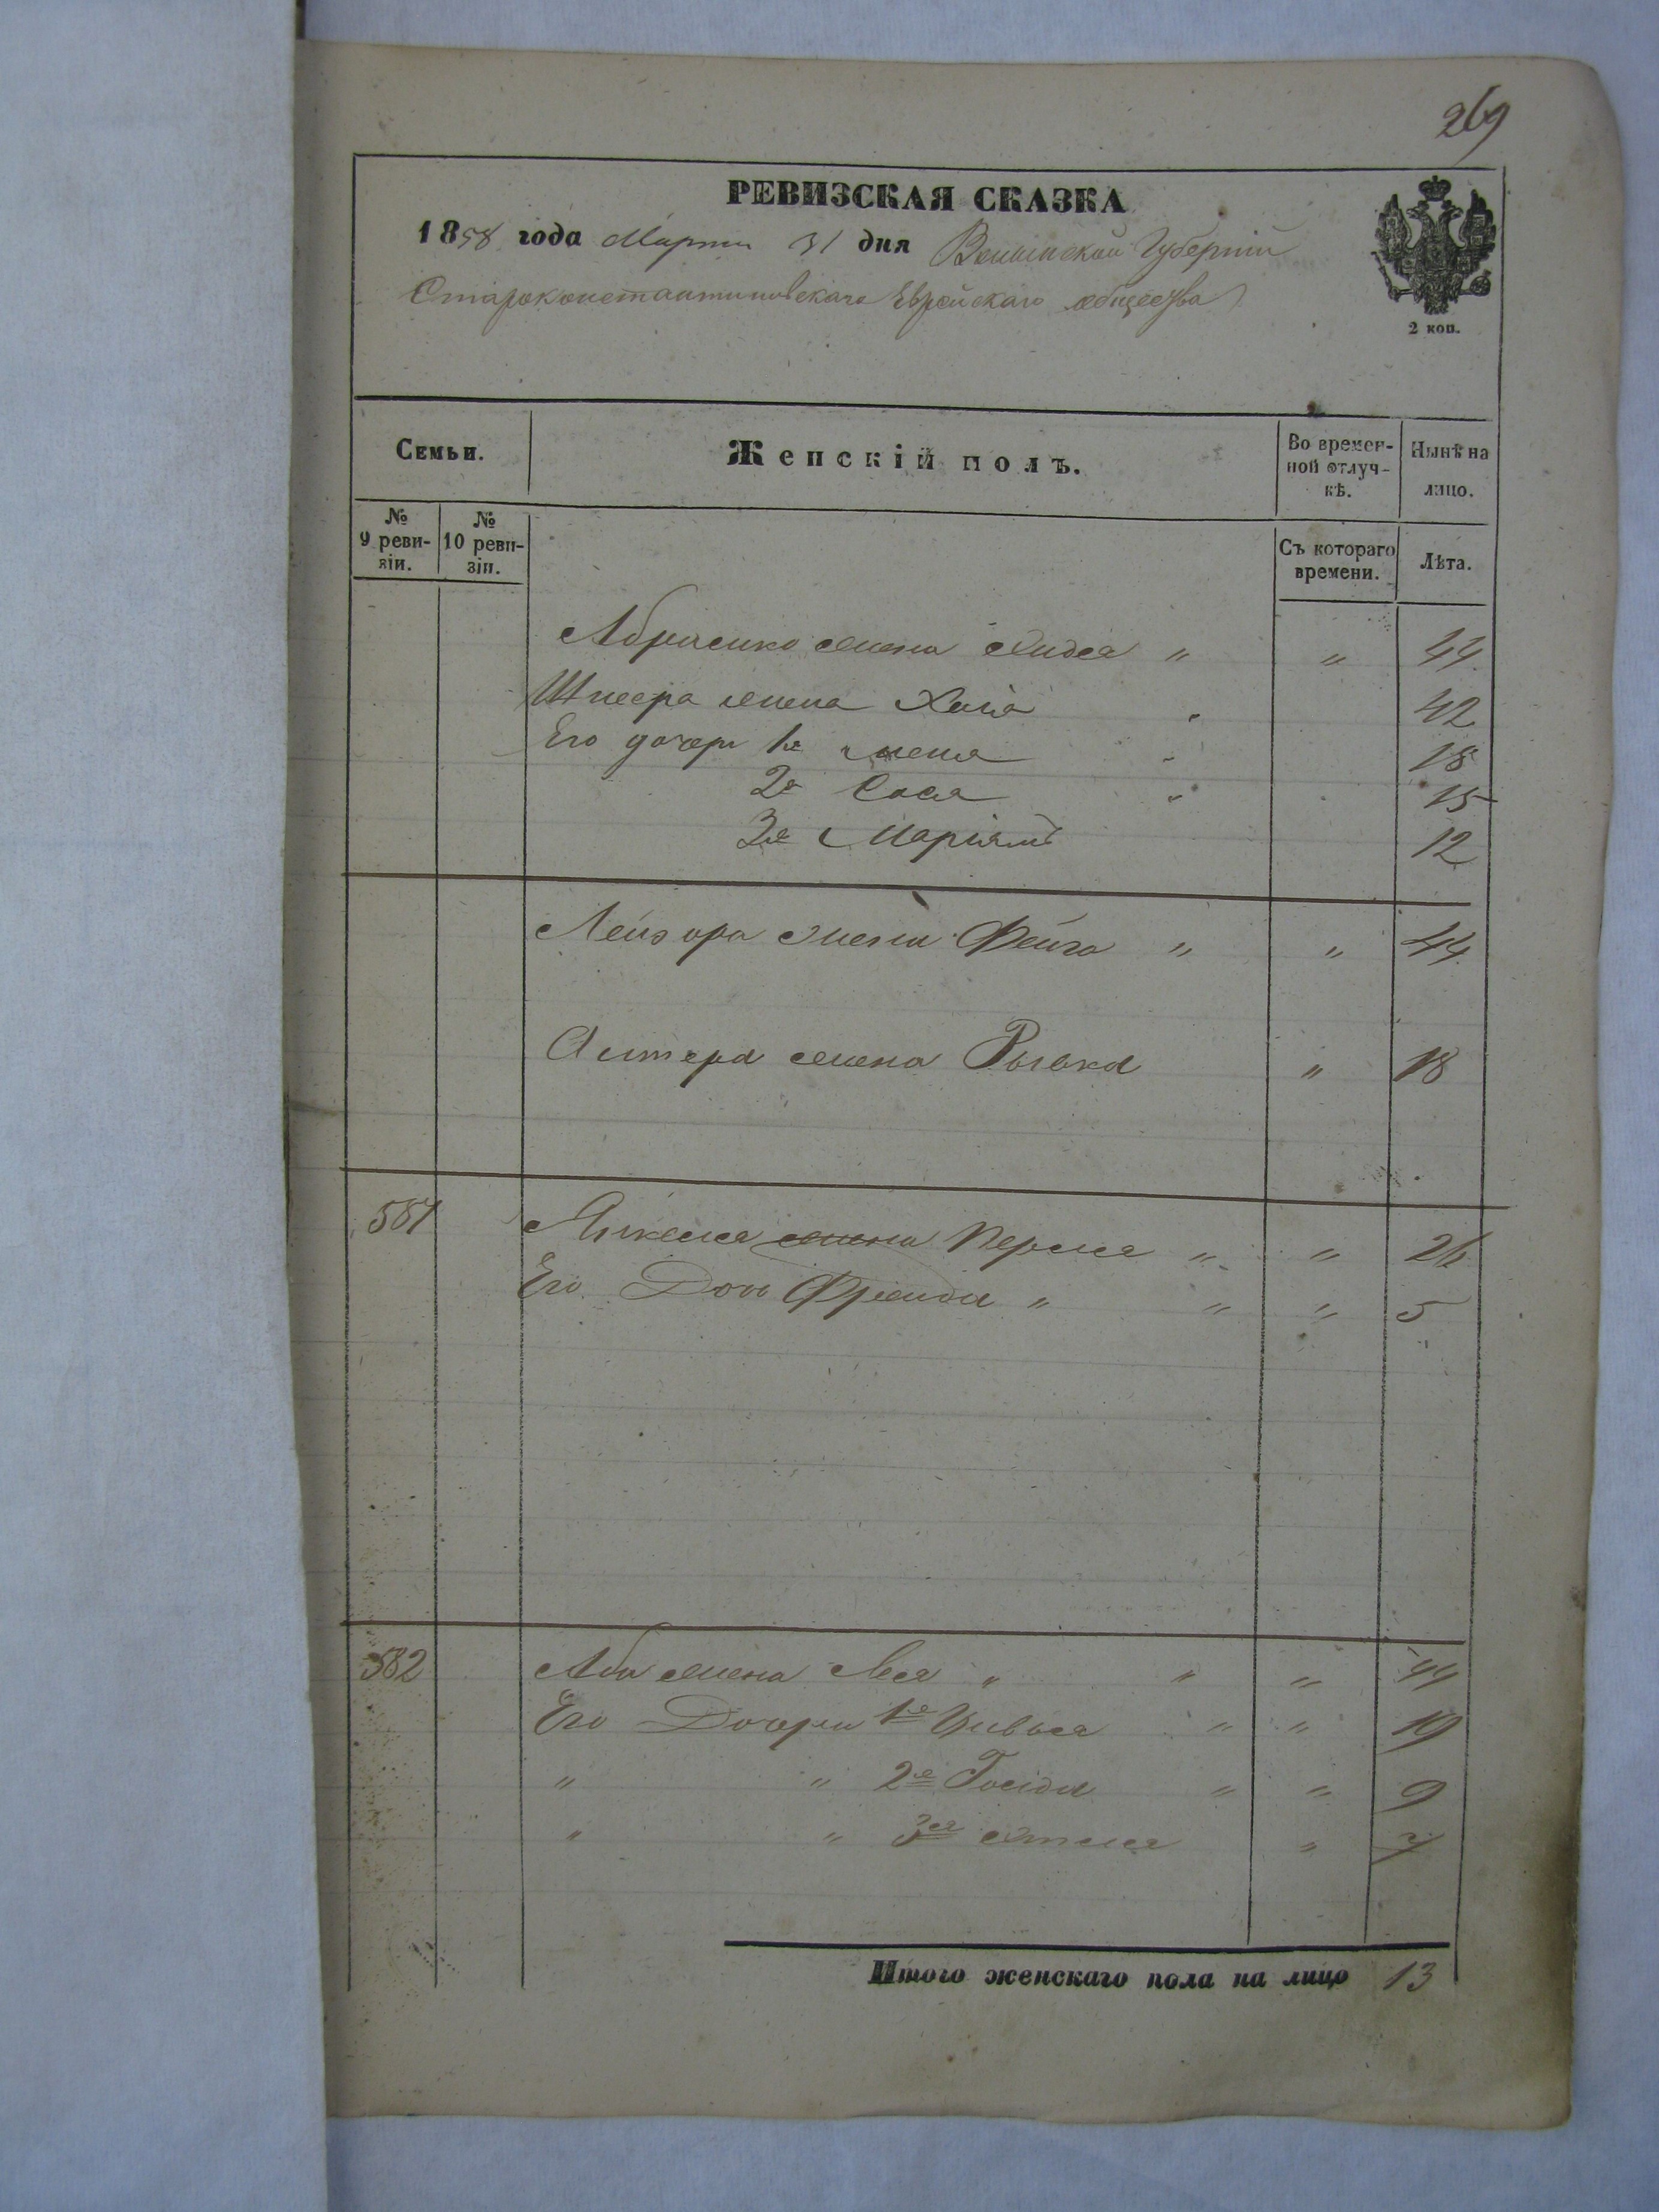 269
РЕВИЗСКАЯ СКАЗКА
1858 года Марта 31 дня Волынской Губерніи
Староконстантиновскаго Еврейскаго общества
2 коп.
Семьи.
Женскій полъ.
Во времен-
ной отлуч-
кѣ.
Нынѣ на
лицо.
№
9 реви-
зіи.
№
10 реви-
зіи.
Съ котораго
времени.
Лѣта.
Абрамко жена " " 44
жена Хаія " 42
Его дочери 1я " 18
2я Сося " 15
3я Маріямъ 12
Лейзора жена Фейга " " 44
жена Рывка " 18
581 жена Перля " " 26
Его Дочь Фрейда " " " 5
582 Аба жена Лея " " " 44
Его Дочери 1я " " 19
" " 2я " " 9
" " 3я " 7
Итого женскаго пола на лицо 13